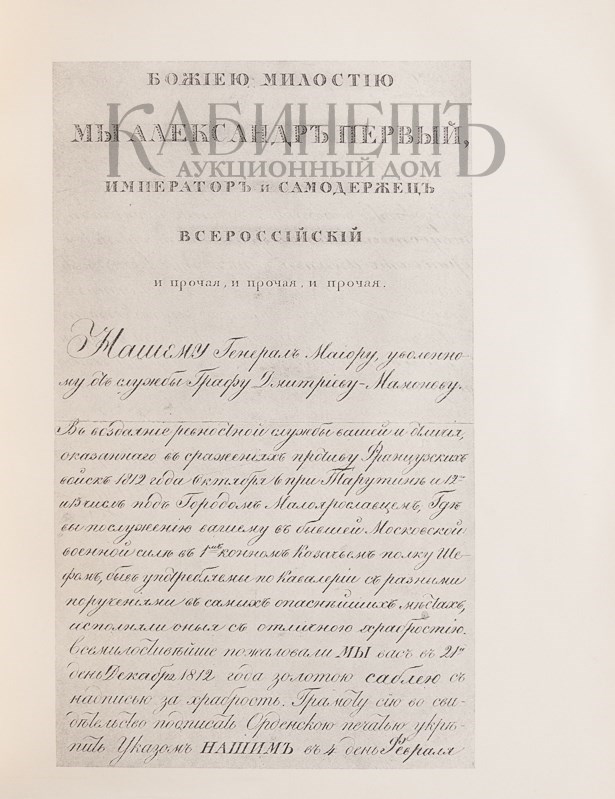 БОЖІЕЮ МИЛОСТІЮ
КАБИНЕТЪ
МЫ АЛЕКСАНДРЪ ПЕРВЫЙ,
АУКЦИОННЫЙ ДОМ
ИМПЕРАТОРЪ и САМОДЕРЖЕЦЪ
ВСЕРОССІЙСКІЙ
и прочая, и прочая, и прочая.
Нашему Генералъ Маіору, уволенно-
му отъ службы Графу Дмитріеву-Мамонову.
Въ воздаяніе ревностной службы вашей и отличія,
оказаннаго въ сраженіяхъ противу Французскихъ
войскъ 1812 года Октября 6 при Тарутинѣ и 12го
и 13 числъ подъ Городомъ Малоярославцемъ, Гдѣ
вы по служенію вашему въ бывшей Московской
военной силѣ въ 1мъ конномъ Козачьемъ полку Ше-
фомъ, бывъ употребляемы по Кавалеріи съ разными
порученіями въ самыхъ опаснѣйшихъ мѣстахъ,
исполняли оныя съ отличною храбростію.
Всемилостивѣйше пожаловали МЫ васъ въ 21й
день Декабря 1812 года золотою саблею съ
надписью за храбрость. Грамоту сію во сви-
дѣтельство подписать Орденскою печатью укрѣ-
пить Указомъ НАШИМЪ въ 4 день Февраля